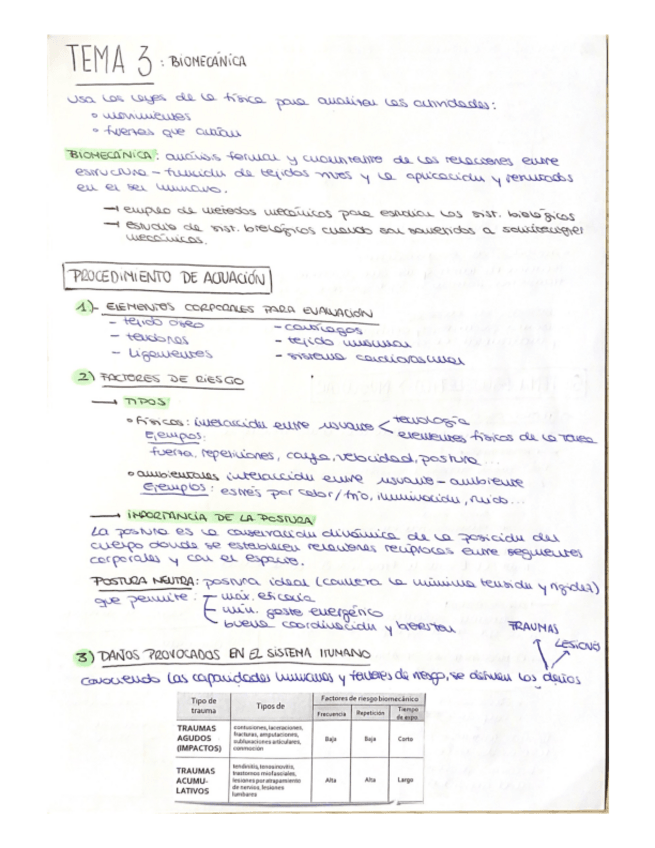 TEMA 3: BIOMECÁNICA
Usa las leyes de la física para analizar las actividades:
movimientos
fuerzas que actúan
BIOMECÁNICA: análisis formal y cuantitativo de las relaciones entre
estructura - función de tejidos vivos y la aplicación y resultados
en el ser humano.
→ empleo de métodos mecánicos para estudiar los sist. biológicos
→ estudio de sist. biológicos cuando son sometidos a solicitaciones
mecánicas.
PROCEDIMIENTO DE ACTUACIÓN
1)- ELEMENTOS CORPORALES PARA EVALUACIÓN
- tejido óseo - cartílagos
- tendones - tejido muscular
- ligamentos - sistema cardiovascular
2) FACTORES DE RIESGO
→ TIPOS
físicos: interacción entre usuario < tecnología
elementos físicos de la tarea
Ejemplos:
fuerza, repeticiones, carga, velocidad, postura...
ambientales interacción entre usuario - ambiente
Ejemplos: estrés por calor/frío, iluminación, ruido...
→ IMPORTANCIA DE LA POSTURA
La postura es la conservación dinámica de la posición del
cuerpo donde se establecen relaciones recíprocas entre segmentos
corporales y con el espacio.
POSTURA NEUTRA: postura ideal (conlleva la mínima tensión y rigidez)
que permite: máx. eficacia
mín. gasto energético
buena coordinación y bienestar
TRAUMAS
LESIONES
3) DAÑOS PROVOCADOS EN EL SISTEMA HUMANO
conociendo las capacidades humanas y factores de riesgo, se definen los daños
Tipo de trauma Tipos de Factores de riesgo biomecánico
Frecuencia Repetición Tiempo de expo.
TRAUMAS AGUDOS (IMPACTOS) contusiones, laceraciones, fracturas, amputaciones, subluxaciones articulares, conmoción Baja Baja Corto
TRAUMAS ACUMU-LATIVOS tendinitis, tenosinovitis, trastornos miofasciales, lesiones por atrapamiento de nervios, lesiones lumbares Alta Alta Largo